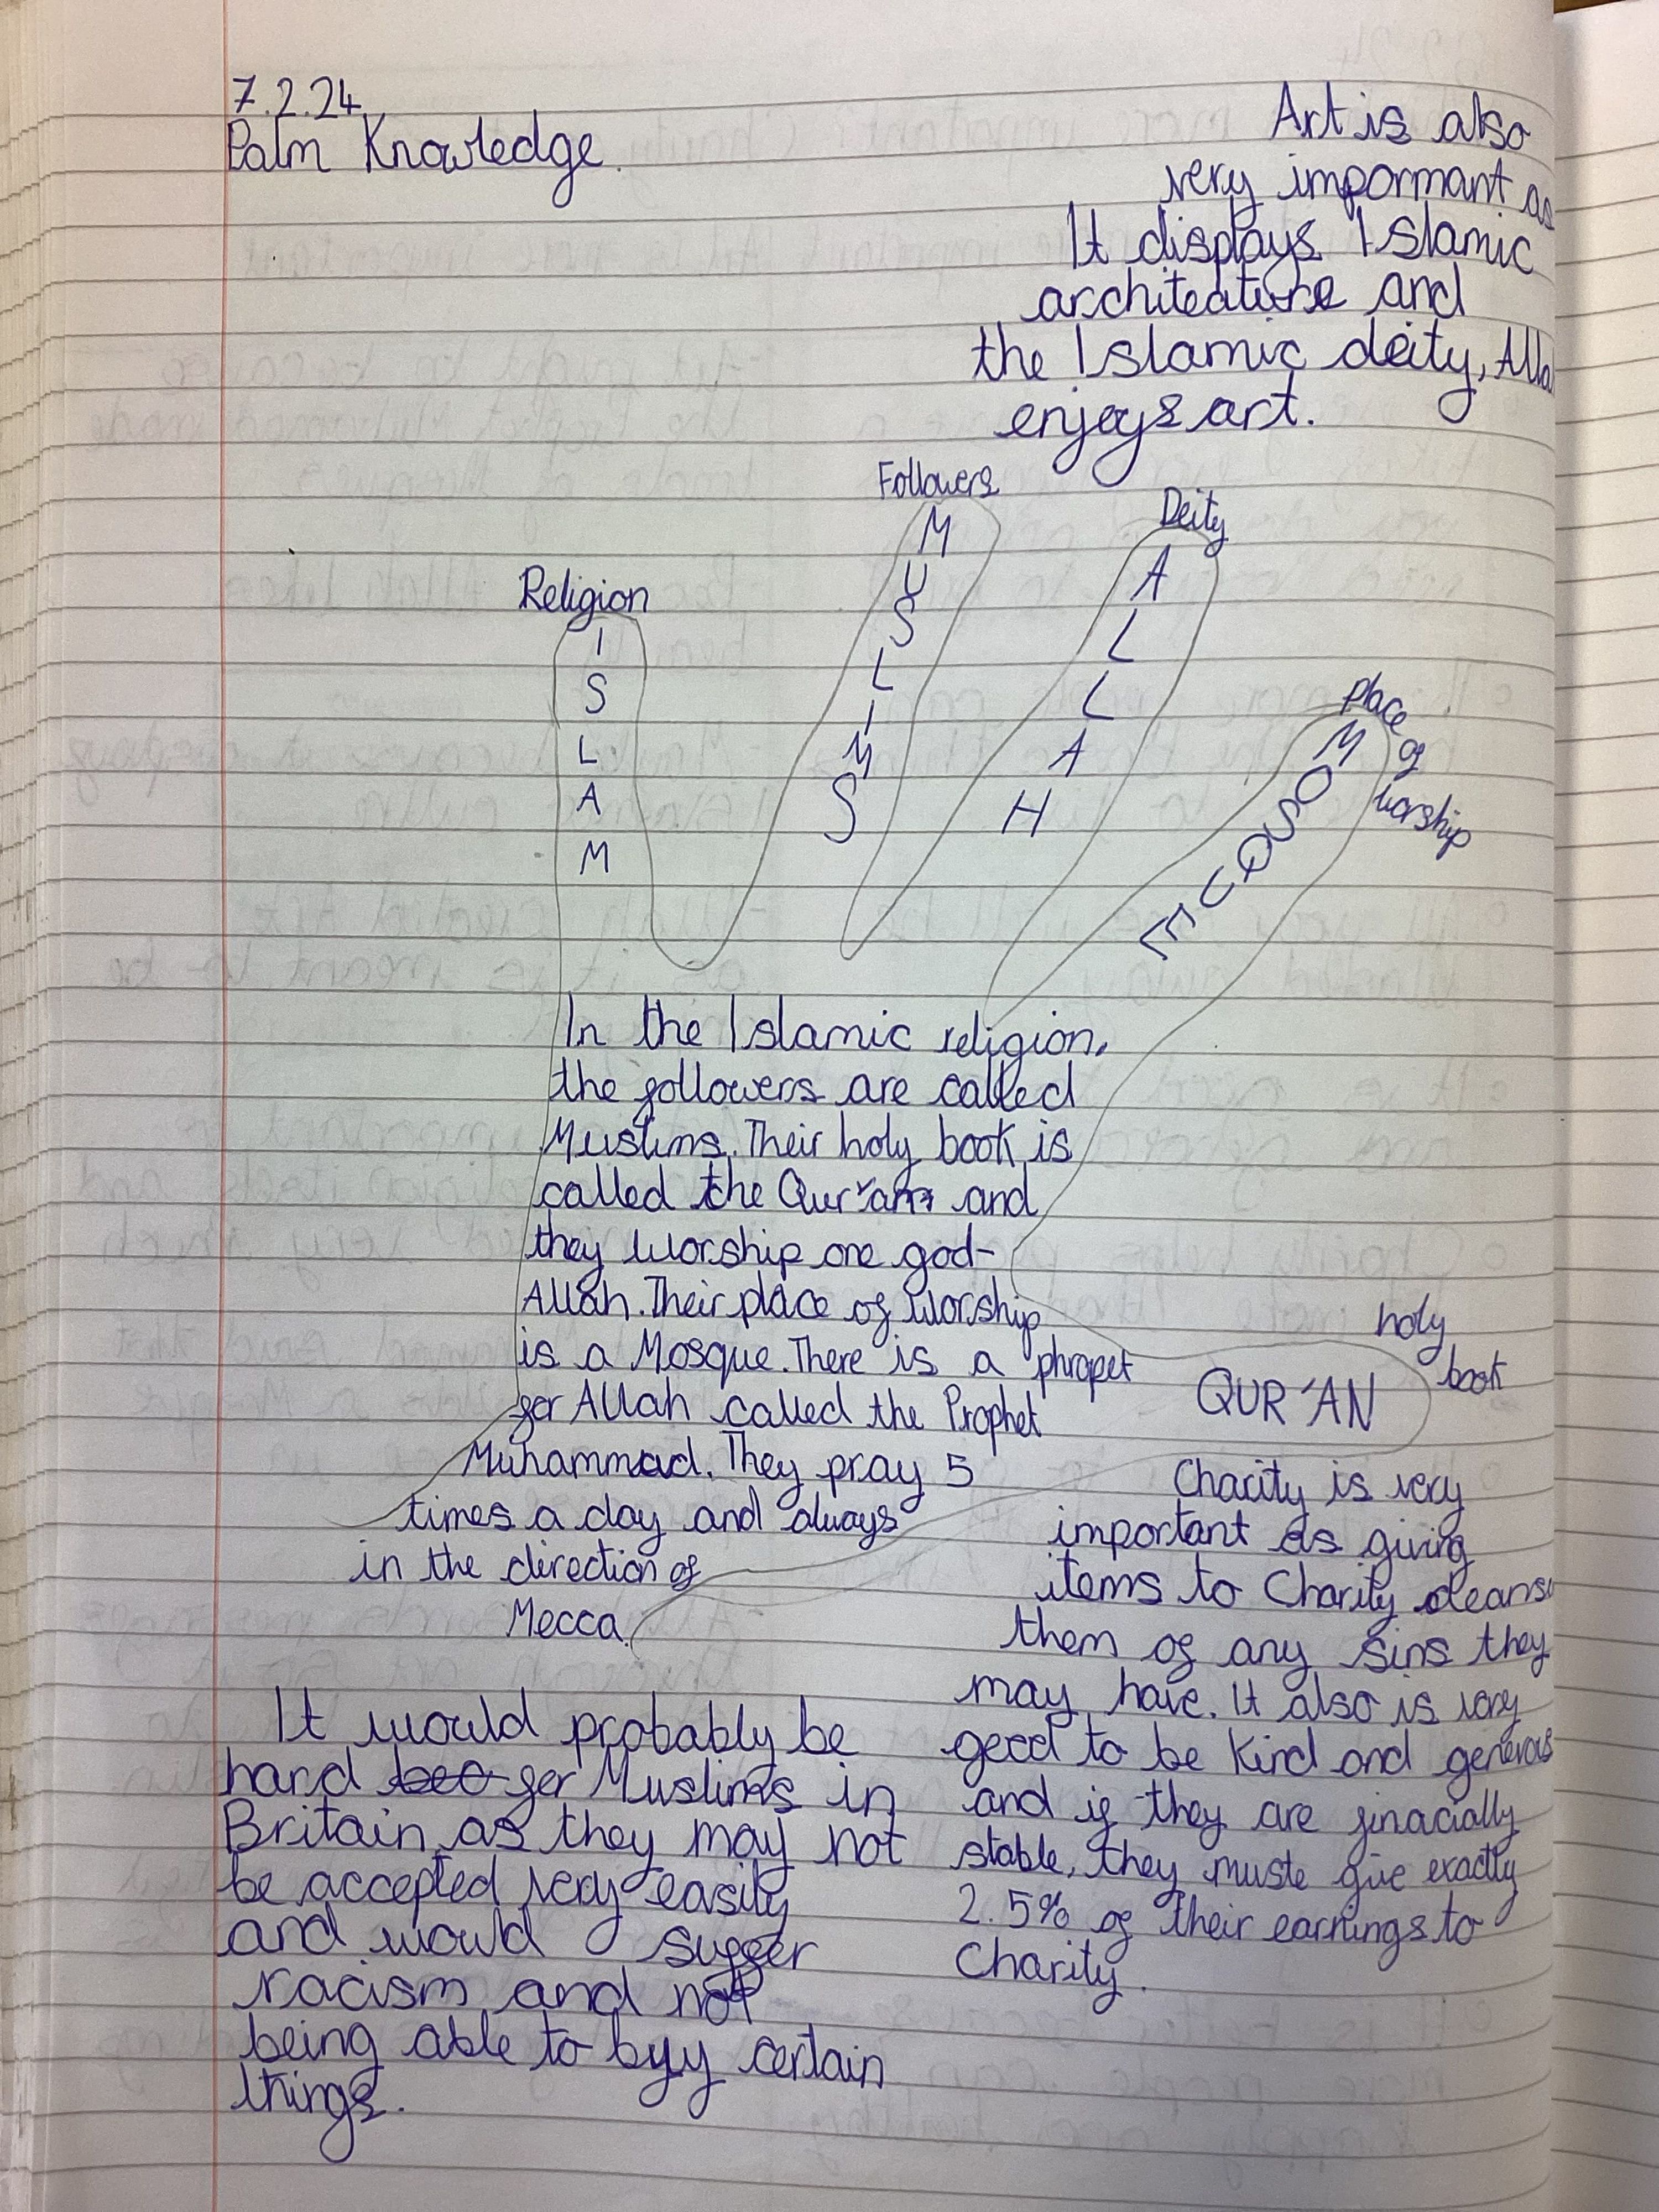 7.2.24
Palm Knowledge.
Art is also
very impormant as
It displays Islamic
architecture and
the Islamic deity, Alla
enjoys art.
Followers
MUSLIMS
Deity
ALLAH
Religion
ISLAM
Place
of
worship
MOSQUE
In the Islamic religion,
the followers are called
Muslims. Their holy book is
called the Qur'an and
they worship one god-
Allah. Their place of worship
is a Mosque. There is a phropet
for Allah called the Prophet
Muhammad. They pray 5
times a day and always
in the direction of
Mecca.
holy
book
QUR'AN
Charity is very
important as giving
items to Charity cleanse
them of any sins they
may have. It also is very
good to be kind and generous
and if they are finacially
stable, they muste give exactly
2.5% of their earnings to
Charity.
It would probably be
hard beo for Muslims in
Britain as they may not
be accepted very easily
and would suffer
racism and not
being able to buy certain
things.